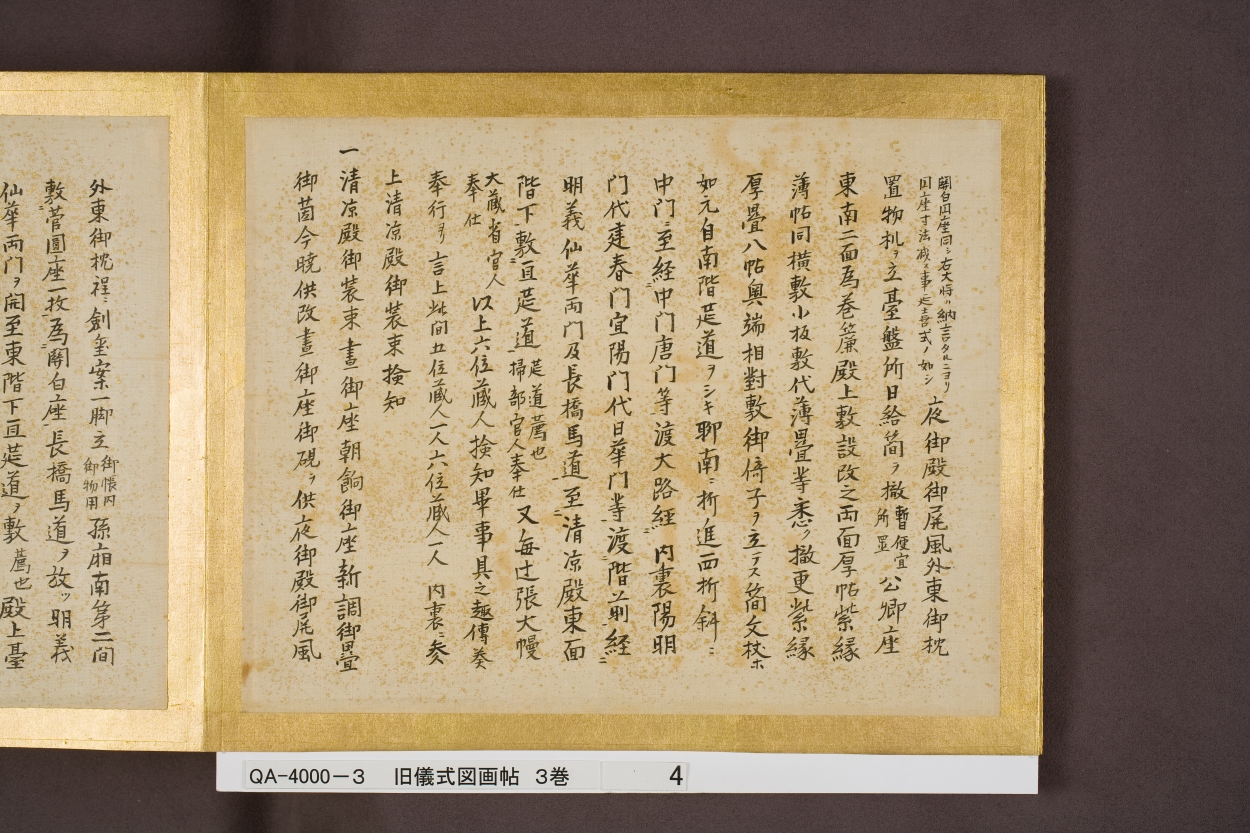 関白円座同シ右大将ハ納言タルニヨリ
円座寸法減ス事延喜式ノ如シ
夜御殿御屏風外東御枕
置物机ヲ立臺盤所日給簡ヲ撤暫便宜所置公卿座
東南二面為巻簾殿上敷設改之両面厚帖紫縁
薄帖同横敷小板敷代薄畳等悉ク撤更紫縁
厚畳八帖奥端相對敷御倚子ヲ立テス簡文杖ホ
如元自南階莚道ヲシキ聊南ニ折進西折斜ニ
中门至経中门唐门等渡大路経内裏陽明
门代建春门宜陽门代日華门等渡階前経
明義仙華両门及長橋馬道至清凉殿東面
階下敷亘莚道莚道薦也掃部官人奉仕又毎辻張大幔
大蔵省官人奉仕以上六位蔵人検知畢事具之趣傳奏
奉行ヨリ言上此间五位蔵人一人六位蔵人一人内裏ニ参
上清凉殿御装束検知
一清凉殿御装束晝御座朝餉御座新調御畳
御茵今暁供改晝御座御硯ヲ供夜御殿御屏風
外東御枕程ニ剣璽案一脚立御帳内御物用孫廂南第二间
敷菅圓座一枚為関白座長橋馬道ヲ放ツ明義
仙華両门ヲ開至東階下亘莚道ヲ敷薦也殿上臺
QA-4000-3 旧儀式図画帖 3巻 4